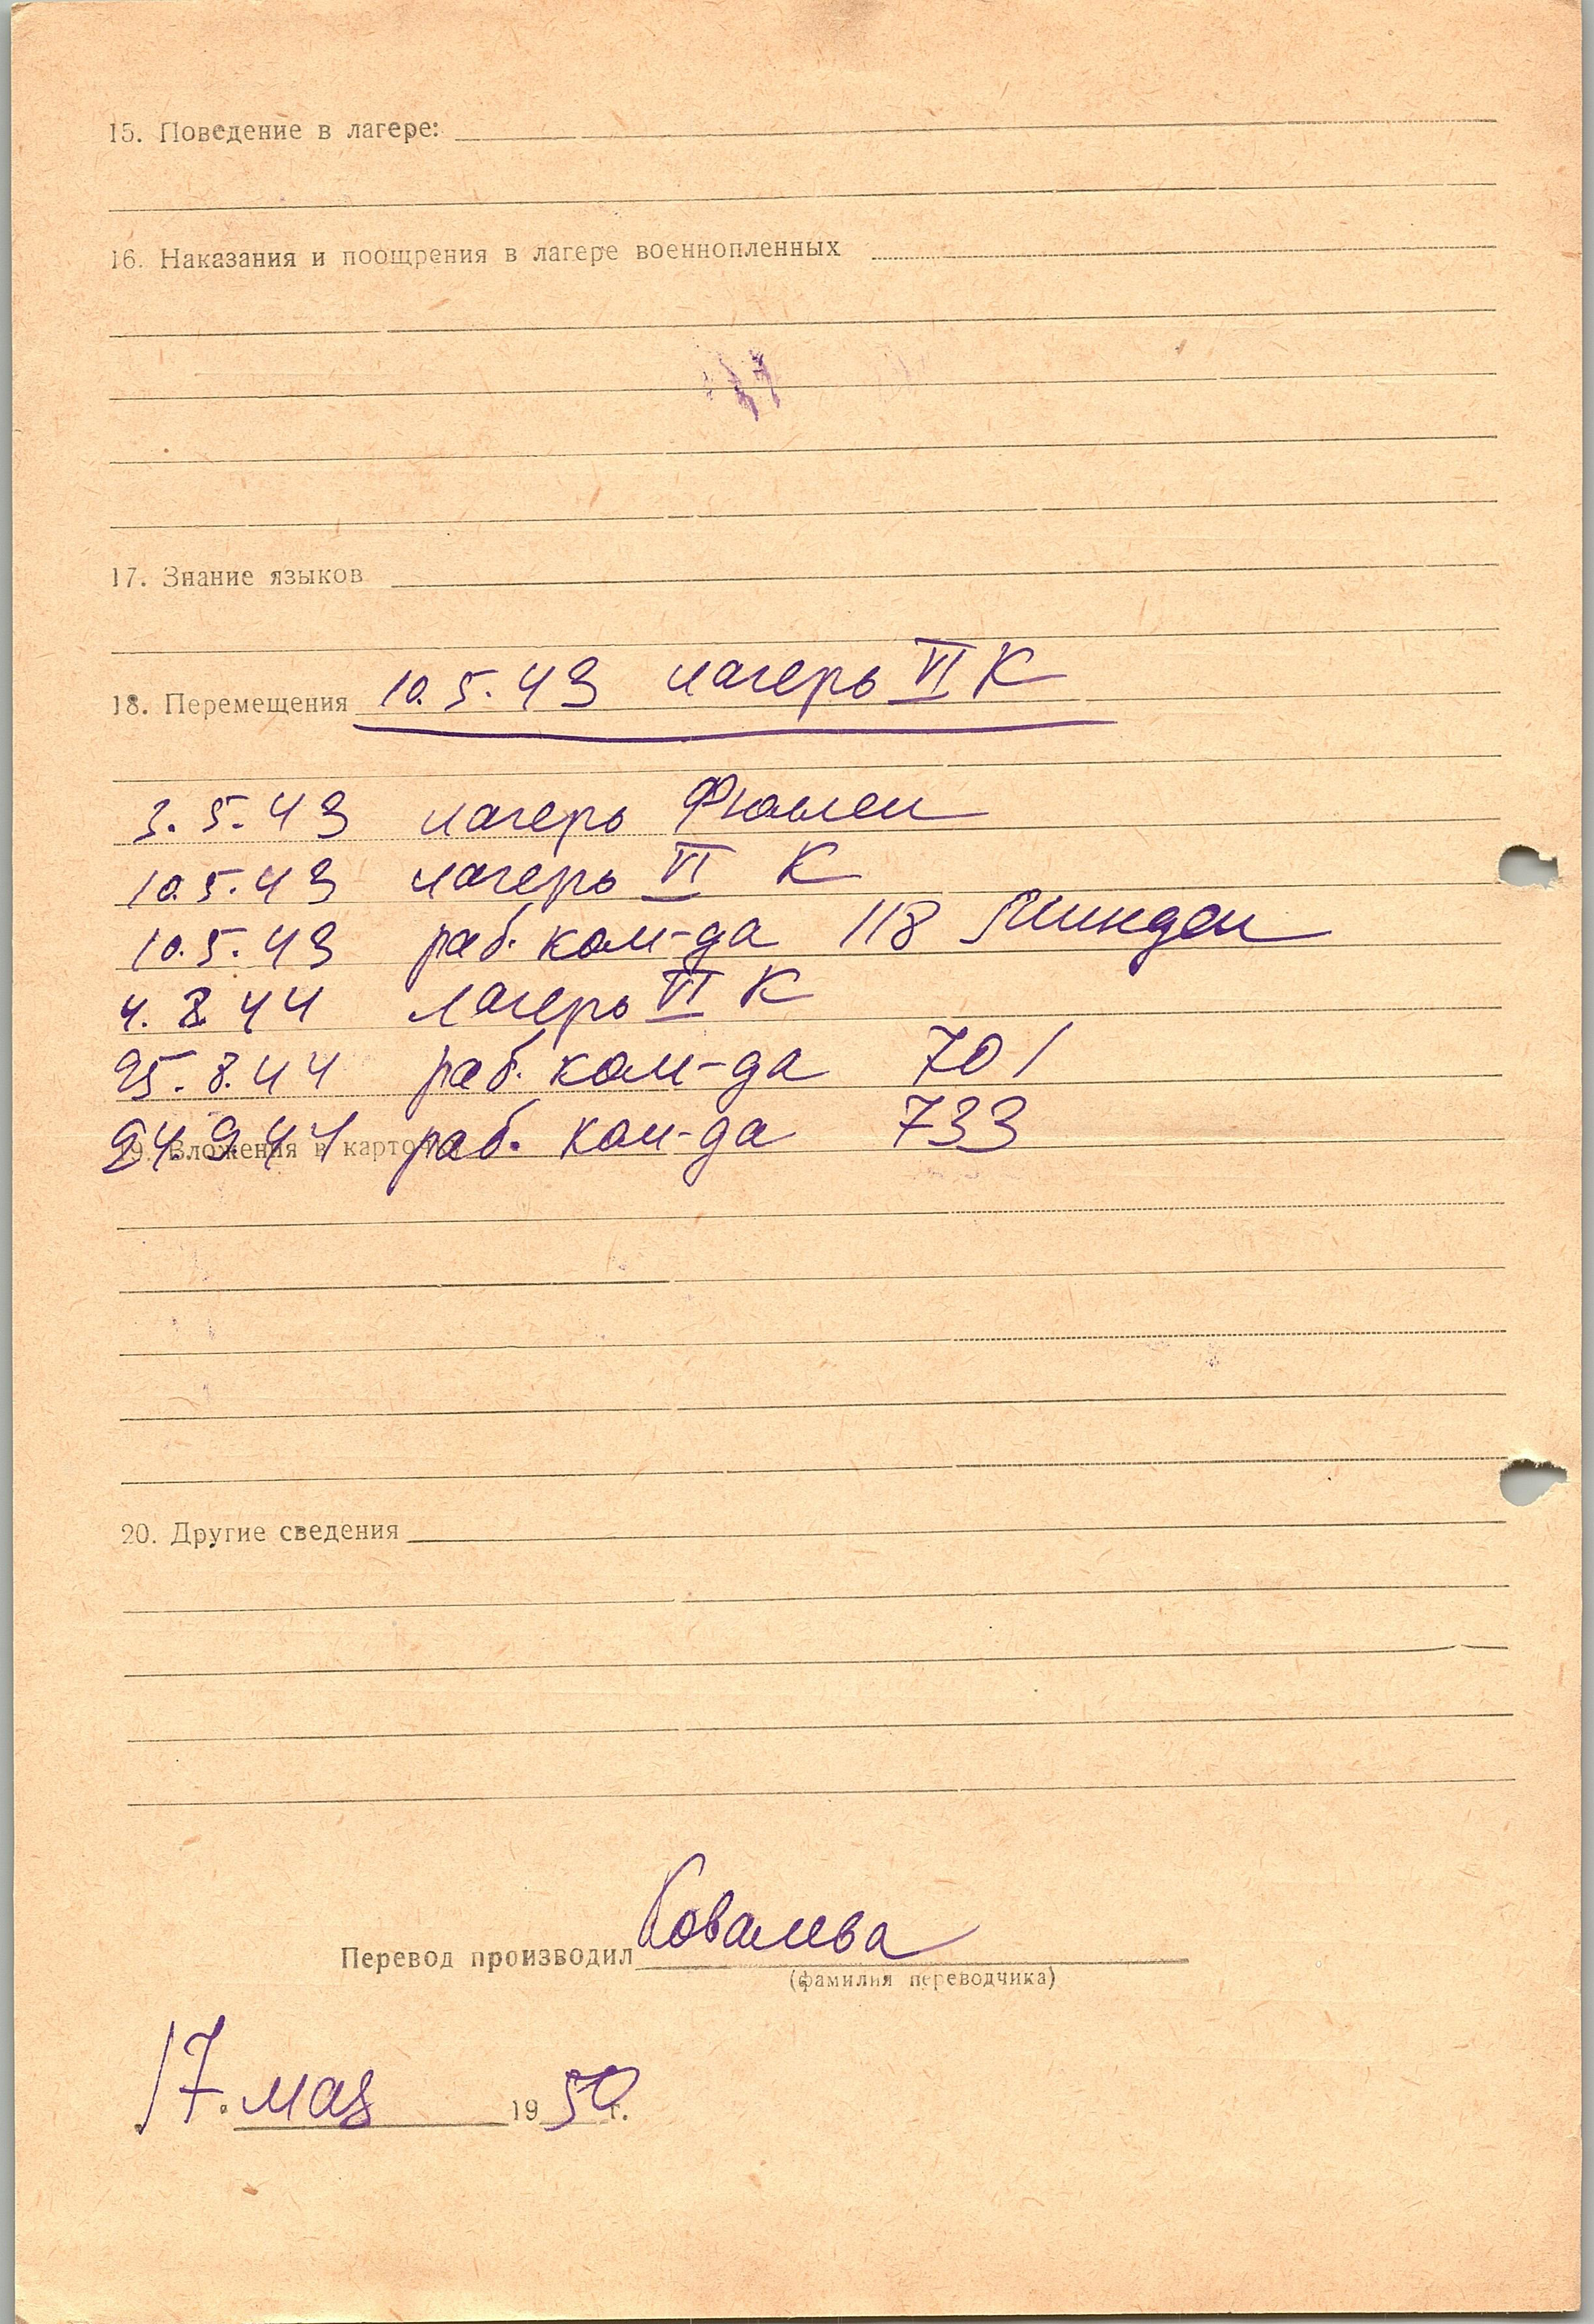 15. Поведение в лагере:
16. Наказания и поощрения в лагере военнопленных
17. Знание языков
18. Перемещения 10.5.43 лагерь VI К
3.5.43 лагерь Фюлен
10.5.43 лагерь VI К
10.5.43 раб. ком-да 118 Минден
4.8.44 лагерь VI К
25.8.44 раб. ком-да 701
24.9.44 раб. ком-да 733
19. Вложения в карто
20. Другие сведения
Перевод производил Ковалева
(фамилия переводчика)
17. мая 1950 г.